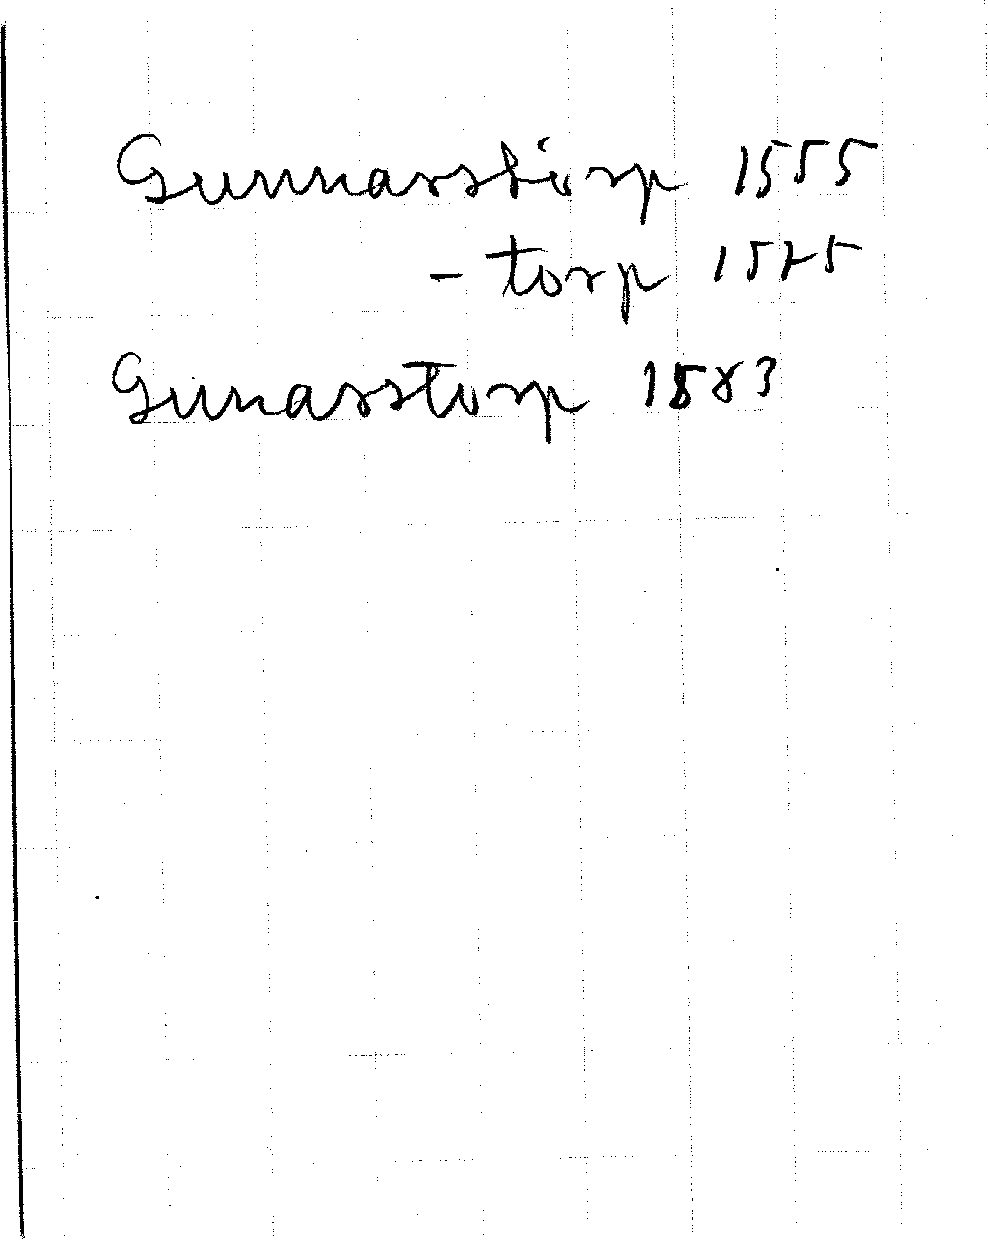 Gunnarstiorp 1555
- torp 1575
Gunarstorp 1583